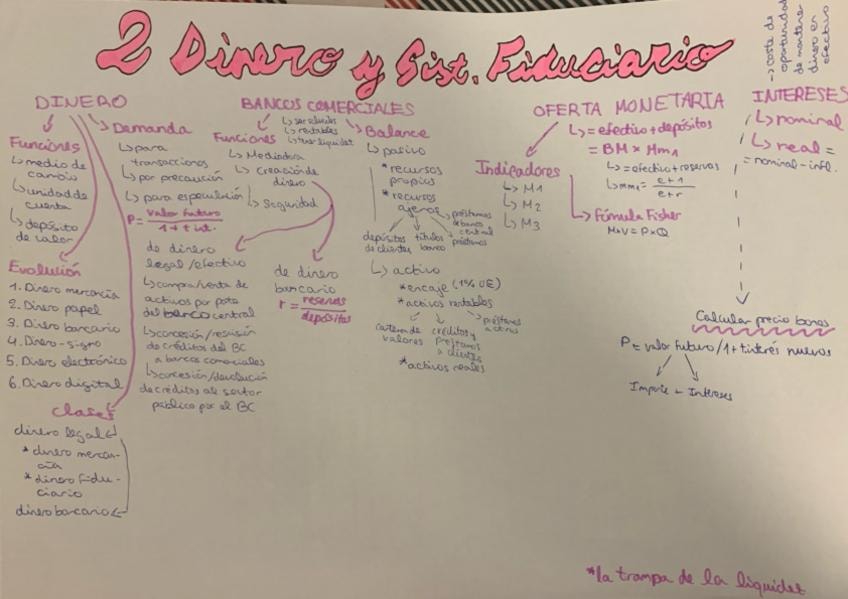 2 Dinero y Sist. Fiduciario
DINERO
Funciones
↳ medio de
cambio
↳ unidad de
cuenta
↳ depósito
de valor
Evolución
1. Dinero mercancía
2. Dinero papel
3. Dinero bancario
4. Dinero-signo
5. Dinero electrónico
6. Dinero digital
Clases
dinero legal
* dinero mercan-
cía
* dinero fidu-
ciario
dinero bancario
Demanda
↳ para
transacciones
↳ por precaución
↳ para especulación
P = valor futuro
1 + t int.
BANCOS COMERCIALES
↳ ser solventes
↳ rentables
↳ tener liquidez
Funciones
↳ Mediadora
↳ creación de
dinero
↳ seguridad
de dinero
legal/efectivo
↳ compra/venta de
activos por parte
del banco central
↳ concesión/revisión
de créditos del BC
a bancos comerciales
↳ concesión/devolución
de créditos al sector
público por el BC
de dinero
bancario
r = reservas
depósitos
Balance
↳ pasivo
* recursos
propios
* recursos
ajenos
depósitos
de clientes
títulos
banco
préstamos
de banco
central
préstamos
↳ activo
* encaje (1% UE)
* activos rentables
cartera de
valores
créditos y
préstamos
a clientes
préstamos
a otros
* activos reales
OFERTA MONETARIA
↳ = efectivo + depósitos
= BM × mm1
↳ = efectivo + reservas
↳ mm1 = e+1
e+r
Indicadores
↳ M1
↳ M2
↳ M3
↳ Fórmula Fisher
M×V = P×Q
INTERESES
→ coste de
oportunidad
de mantener
dinero en
efectivo
↳ nominal
↳ real =
= nominal - infl.
Calcular precio bonos
P = valor futuro/1 + t interés nuevos
Importe + Intereses
*la trampa de la liquidez